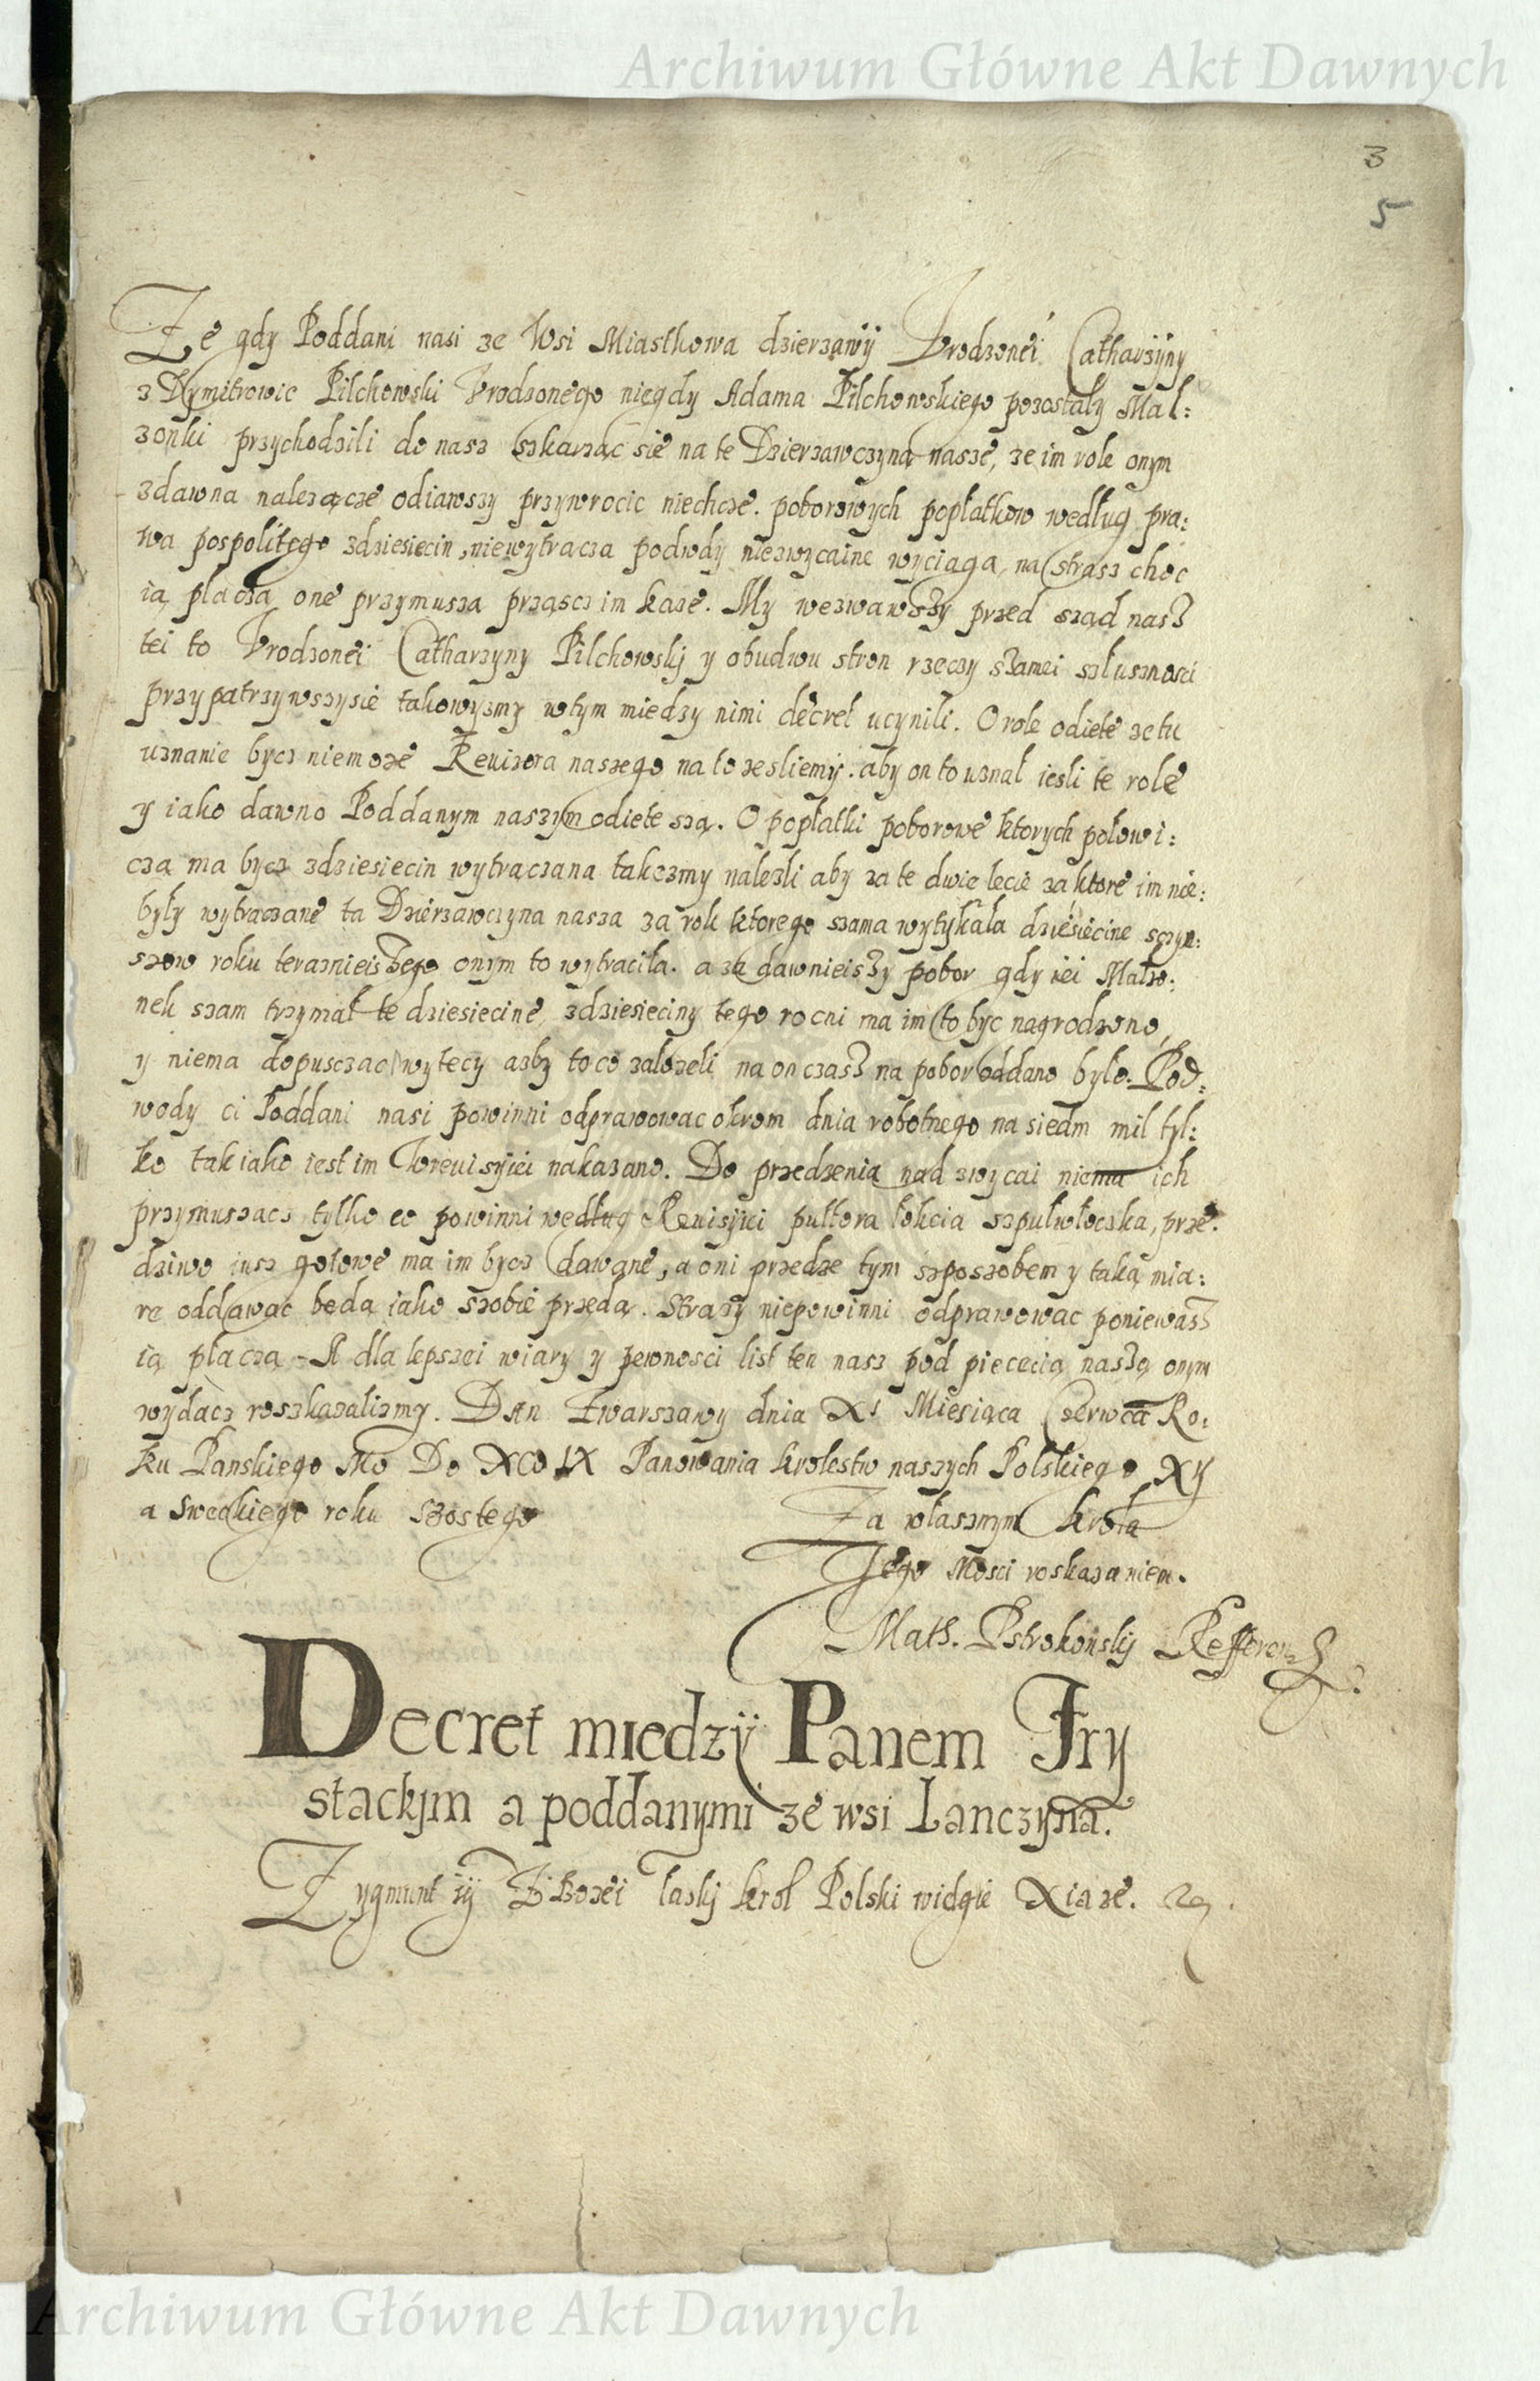 Archiwum Główne Akt Dawnych
3
5
Ze gdy Poddani nasi ze Wsi Miastkowa dzierzawÿ Vrodzonei Catharzÿny
z Dymitrowic Pilchowski Vrodzonego niegdy Adama Pilchowskiego pozostałÿ Mał:
zonki przychodzili do nasz szkarzac sie na te Dzierzawczyna nasze, ze im role onym
zdawna nalezącze odiawszy przywrocic niechcze. poborowych popłatkow według pra:
wa pospolitego zdziesiecin niewytracza podwdy niezwycaine wyciąga, na strasz choc
ią placza one przymusza prząscz im kaze. My wezwawszy przed sząd nasz
tei to Vrodzonei Catharzyny Pilchowskj y obudwu stron rzeczy szamei szlusznosci
przypatrzywszysie takowyzmy wtym miedzy nimi decret ucynili. O role odiete ze tu
uznanie bycz niemoze Reuizora naszego na to zesliemy. aby on to uznał iesli te role
y iako dawno Poddanym naszym odiete szą. O popłatki poborowe ktorych połowi:
czą ma bycz zdziesiecin wytraczana takezmy nalezli aby za te dwie lecie za ktore im nie:
były wytraczane ta Dzierzawczyna nasza za rok ktorego szama wytykała dziesiecine sczyn:
szow roku teraznieiszego onym to wytraciła. a za dawnieiszy pobor gdy iei Małzo:
nek szam trzymał te dziesiecine, zdziesieciny tego rocni ma im to byc nagrodzono,
y niema dopusczac wytecy azby to co załozeli na on czasz na pobor oddano było. Pod:
wody ci Poddani nasi powinni odprawowac okrom dnia robotnego na siedm mil tyl:
ko tak iako iest im Wreuisÿiei nakazano. Do przedzenia nad zwycai niema ich
przymuszacz tylko co powinni według Reuisÿiei pułtora łokcia szpułwłoczka, prze:
dziwo iusz gotowe ma im bycz dawane, a oni przedze tym szposzobem y taką mia:
rę oddawac beda iako szobie przeda. Strazy niepowinni odprawowac poniewasz
ią płaczą - A dla lepszei wiary y pewnosci list ten nasz pod pieczecią naszą onym
wydacz roszkazalizmy. Dan Zwarszawy dnia XI Miesiąca Czerwca Ro:
ku Panskiego Mo Do XCo IX Panowania krolestw naszych Polskiego XII
a Sweckiego roku szostego
Za własznym krola
Jego Mosci roskazaniem.
Math. Pstrokonskj Refferen
Decret miedzÿ Panem Fry
stackim a poddanymi ze wsi Lanczyna.
Zygmunt iij Z Bozei łaskj krol Polski widgie Xiaze.
Archiwum Główne Akt Dawnych